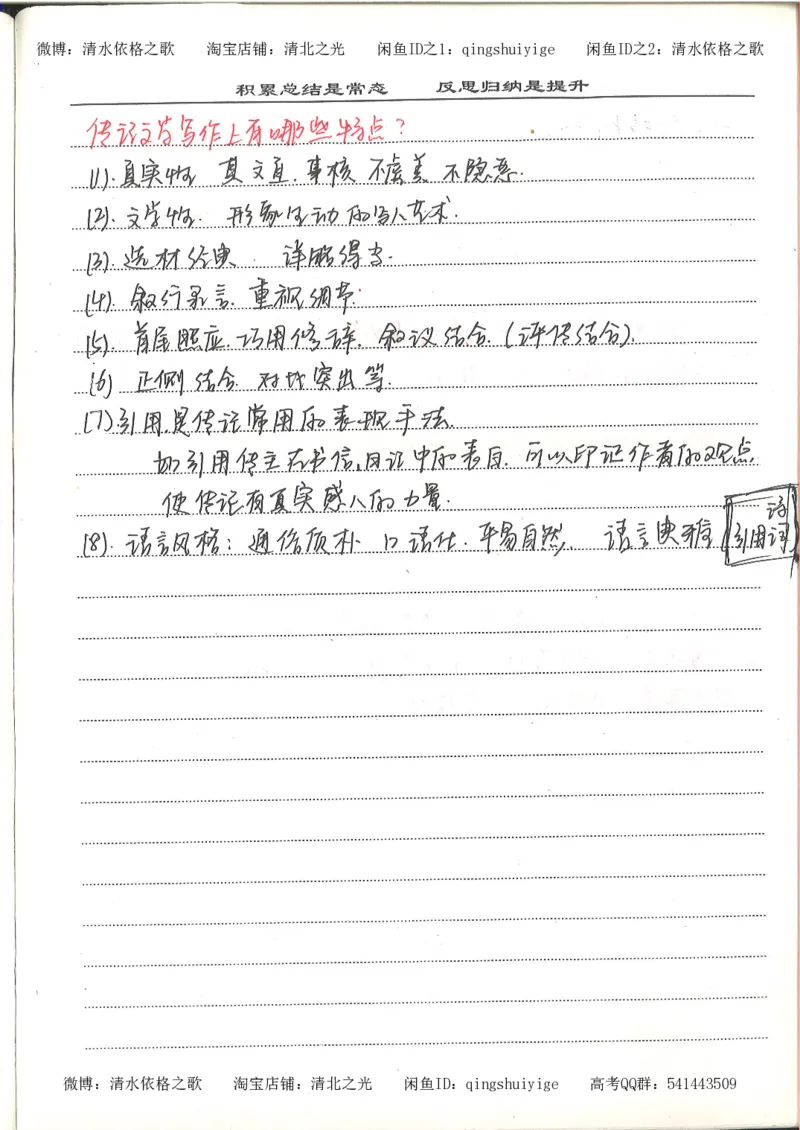 微博：清水依格之歌　　淘宝店铺：清北之光　　闲鱼ID之1：qingshuiyige　　闲鱼ID之2：清水依格之歌
积累总结是常态　　反思归纳是提升
传记文学写作上有哪些特点？
(1).真实性 其文直.事核 不虚美 不隐恶.
(2).文学性. 形象生动的写人艺术.
(3).选材经典. 详略得当.
(4).叙行录言.重视细节.
(5).首尾照应.巧用修辞.叙议结合.(评传结合).
(6) 正侧结合.对比突出等.
(7)引用.是传记常用的表现手法.
如引用传主在书信,日记中的表白.可以印证作者的观点
使传记有真实感人的力量.
(8).语言风格：通俗质朴 口语化.平易自然. 语言典雅(引用诗词)
微博：清水依格之歌　　淘宝店铺：清北之光　　闲鱼ID：qingshuiyige　　高考QQ群：541443509